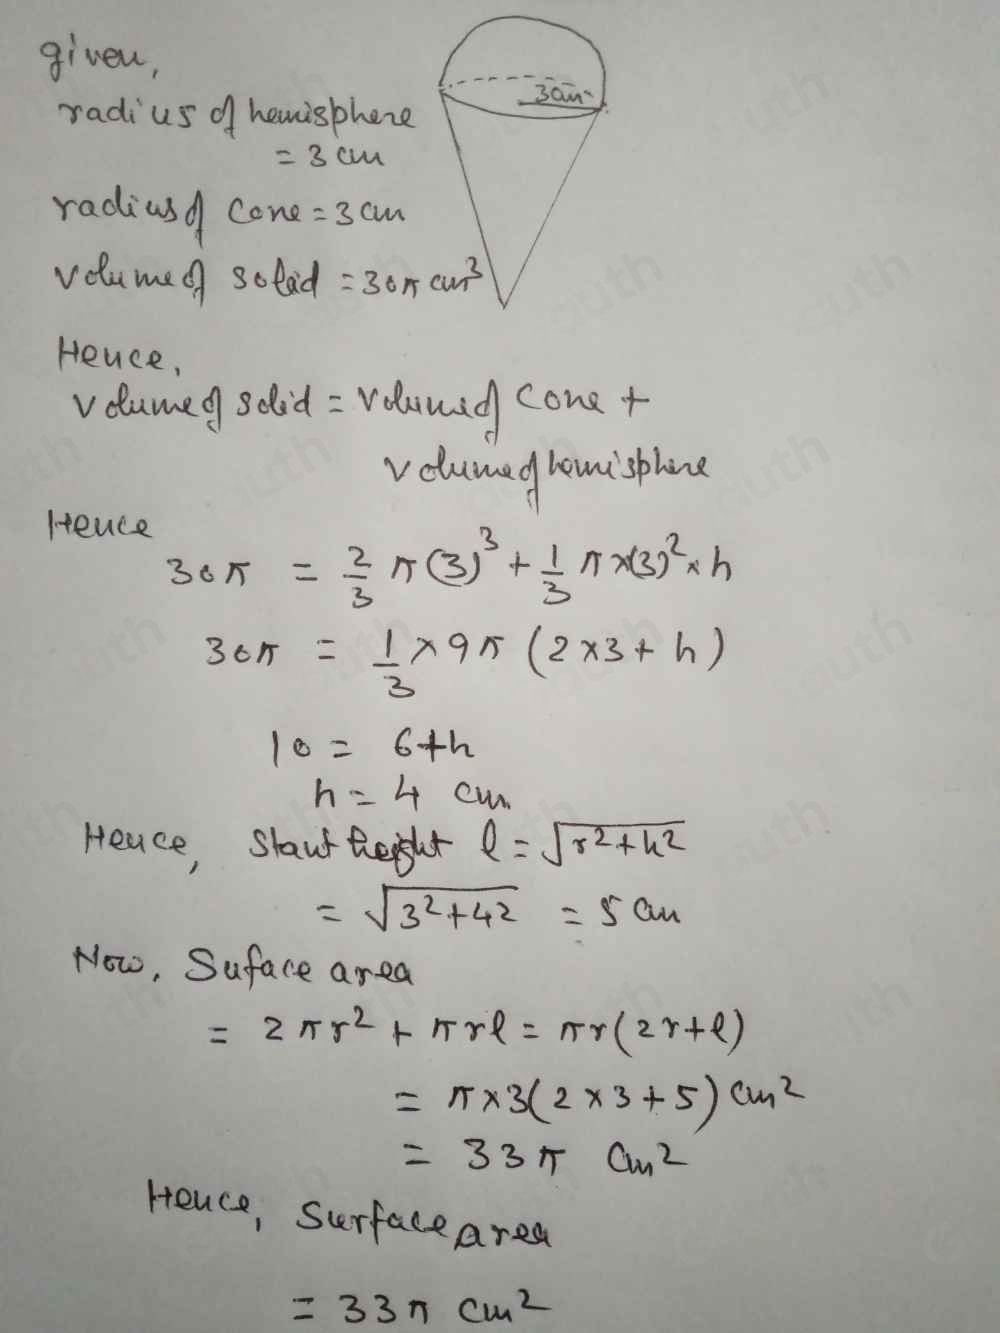 given,
3cm
radius of hemisphere
= 3 cm
radius of cone = 3 cm
volume of solid = 30π cm³
Hence,
volume of solid = volume of cone +
volume of hemisphere
Hence
30π = 2/3 π(3)³ + 1/3 π×(3)²×h
30π = 1/3 × 9π (2×3+h)
10 = 6+h
h = 4 cm
Hence, slant height l = √r²+h²
= √3²+4² = 5 cm
Now, Suface area
= 2πr² + πrl = πr(2r+l)
= π×3(2×3+5) cm²
= 33π cm²
Hence, Surface Area
= 33π cm²